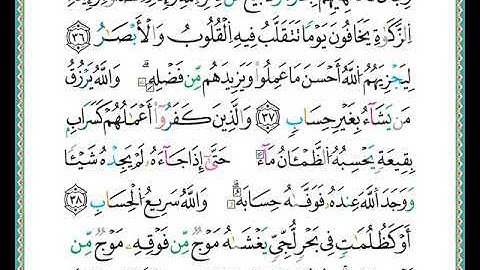 ٱلزَّكَوٰةِ يَخَافُونَ يَوْمًا تَتَقَلَّبُ فِيهِ ٱلْقُلُوبُ وَٱلْأَبْصَـٰرُ ٣٦
لِيَجْزِيَهُمُ ٱللَّهُ أَحْسَنَ مَا عَمِلُوا۟ وَيَزِيدَهُم مِّن فَضْلِهِۦ وَٱللَّهُ يَرْزُقُ
مَن يَشَآءُ بِغَيْرِ حِسَابٍ ٣٧ وَٱلَّذِينَ كَفَرُوٓا۟ أَعْمَـٰلُهُمْ كَسَرَابٍ
بِقِيعَةٍ يَحْسَبُهُ ٱلظَّمْـَٔانُ مَآءً حَتَّىٰٓ إِذَا جَآءَهُۥ لَمْ يَجِدْهُ شَيْـًٔا
وَوَجَدَ ٱللَّهَ عِندَهُۥ فَوَفَّىٰهُ حِسَابَهُۥ وَٱللَّهُ سَرِيعُ ٱلْحِسَابِ ٣٨
أَوْ كَظُلُمَـٰتٍ فِى بَحْرٍ لُّجِّىٍّ يَغْشَىٰهُ مَوْجٌ مِّن فَوْقِهِۦ مَوْجٌ مِّن